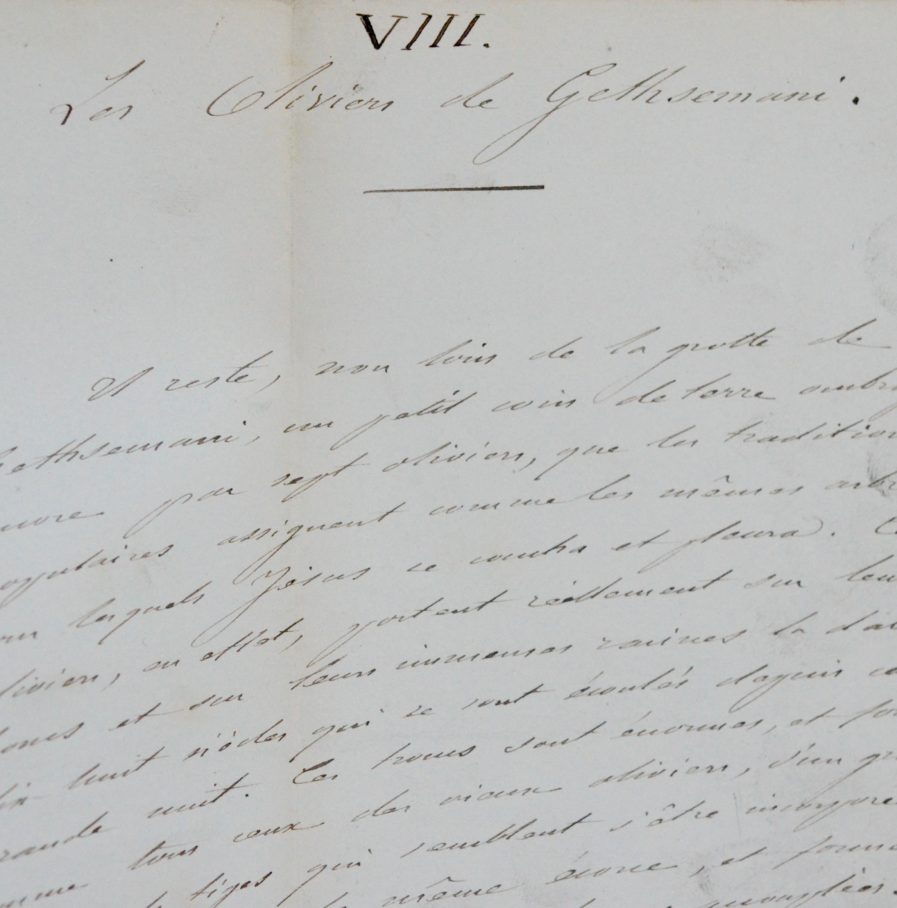 VIII.
Les Oliviers de Gethsemani.
Il reste, non loin de la grotte de
Gethsemani, un petit coin de terre ombrag
encore par sept oliviers, que les tradition
populaires assignent comme les mêmes arbr
sous lesquels Jésus se coucha et pleura. C
oliviers, en effet, portent réellement sur leur
troncs et sur leurs immenses racines la dat
dix huit siècles qui se sont écoulés depuis ce
grande nuit. Ces troncs sont énormes, et for
comme tous ceux des vieux oliviers, d'un gr
de tiges qui semblent s'être incorporé
la même écorce, et form